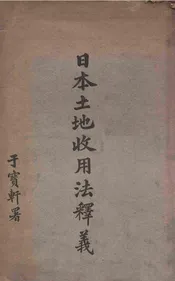 日本土地收用法釋義
于寶軒署